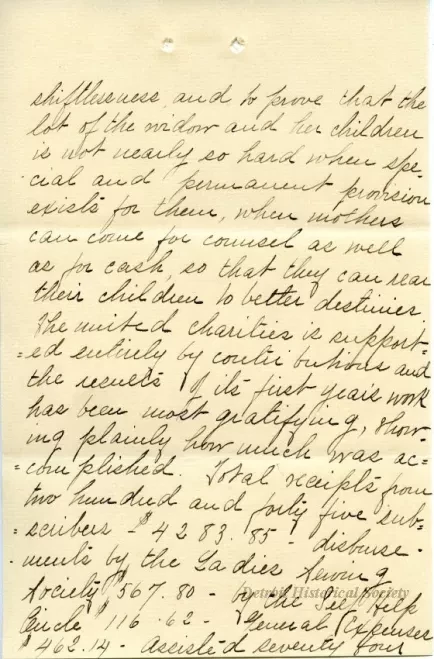 shiftlessness, and to prove that the
lot of the widow and her children
is not nearly so hard when spe-
cial and permanent provision
exists for them, when mothers
can come for counsel as well
as for cash, so that they can rear
their children to better destinies.
The united charities is support-
=ed entirely by contributions and
the results of its first years work
has been most gratifying, show-
ing plainly how much was ac-
=complished. Total receipts from
two hundred and forty five sub-
=scribers - $4283.85 - disburse-
ments by the Ladies Sewing
Society $567.80 - by the Self Help
Circle $116.62 - General Expenses
$462.14 - Assisted seventy four
Detroit Historical Society